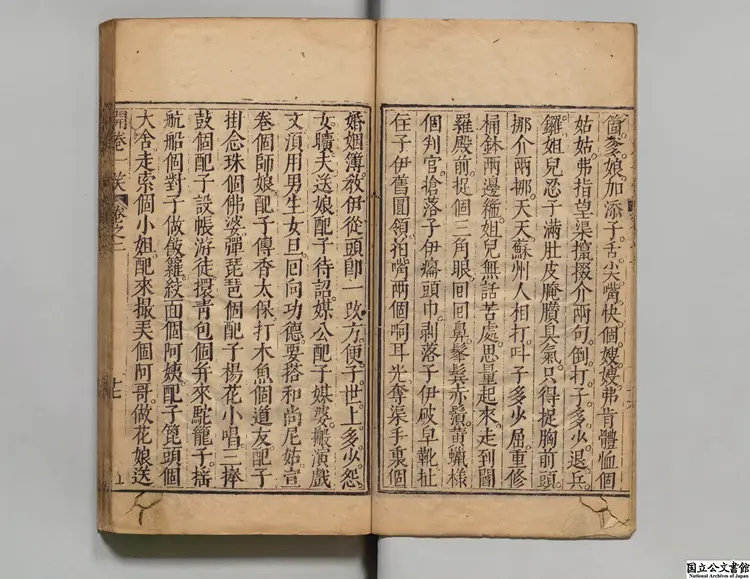 箇爹娘加添子舌尖嘴快個嫂嫂弗肯體恤個
姑姑弗指望渠攛掇介兩句倒打子多少退兵
鑼姐兒忍子滿肚皮腌臢臭氣只得捉胸前頭
挪介兩挪天天蘇州人相打叫子多少屈重修
桶鉢兩邊箍姐兒無話苦處思量起來走到閻
羅殿前捉個三角眼回回鼻鬈亦鬚黄蠟樣
個判官搶落子伊癟頭巾剥落子伊破皁靴扯
住子伊舊圓領拍嘴兩個耳光奪渠手裏個
婚姻簿教伊從頭即一改方便子世上多少怨
女曠夫送娘配子待詔媒公配子媒婆搬演戲
文湏用男生女旦回向功德要搭和尚尼姑宣
卷個師娘配子傳香太保打木魚個道友配子
掛念珠個佛婆彈琵琶個配子楊花小唱三捧
鼓個配子設帳游徒擐青包個弁來駝籠子搖
航船個對子做飯籮紋面個阿姨配子箆頭個
大舍走索個小姐配來撮弄個阿哥做花娘送
開卷一笑 卷之三 十七
国立公文書館
National Archives of Japan